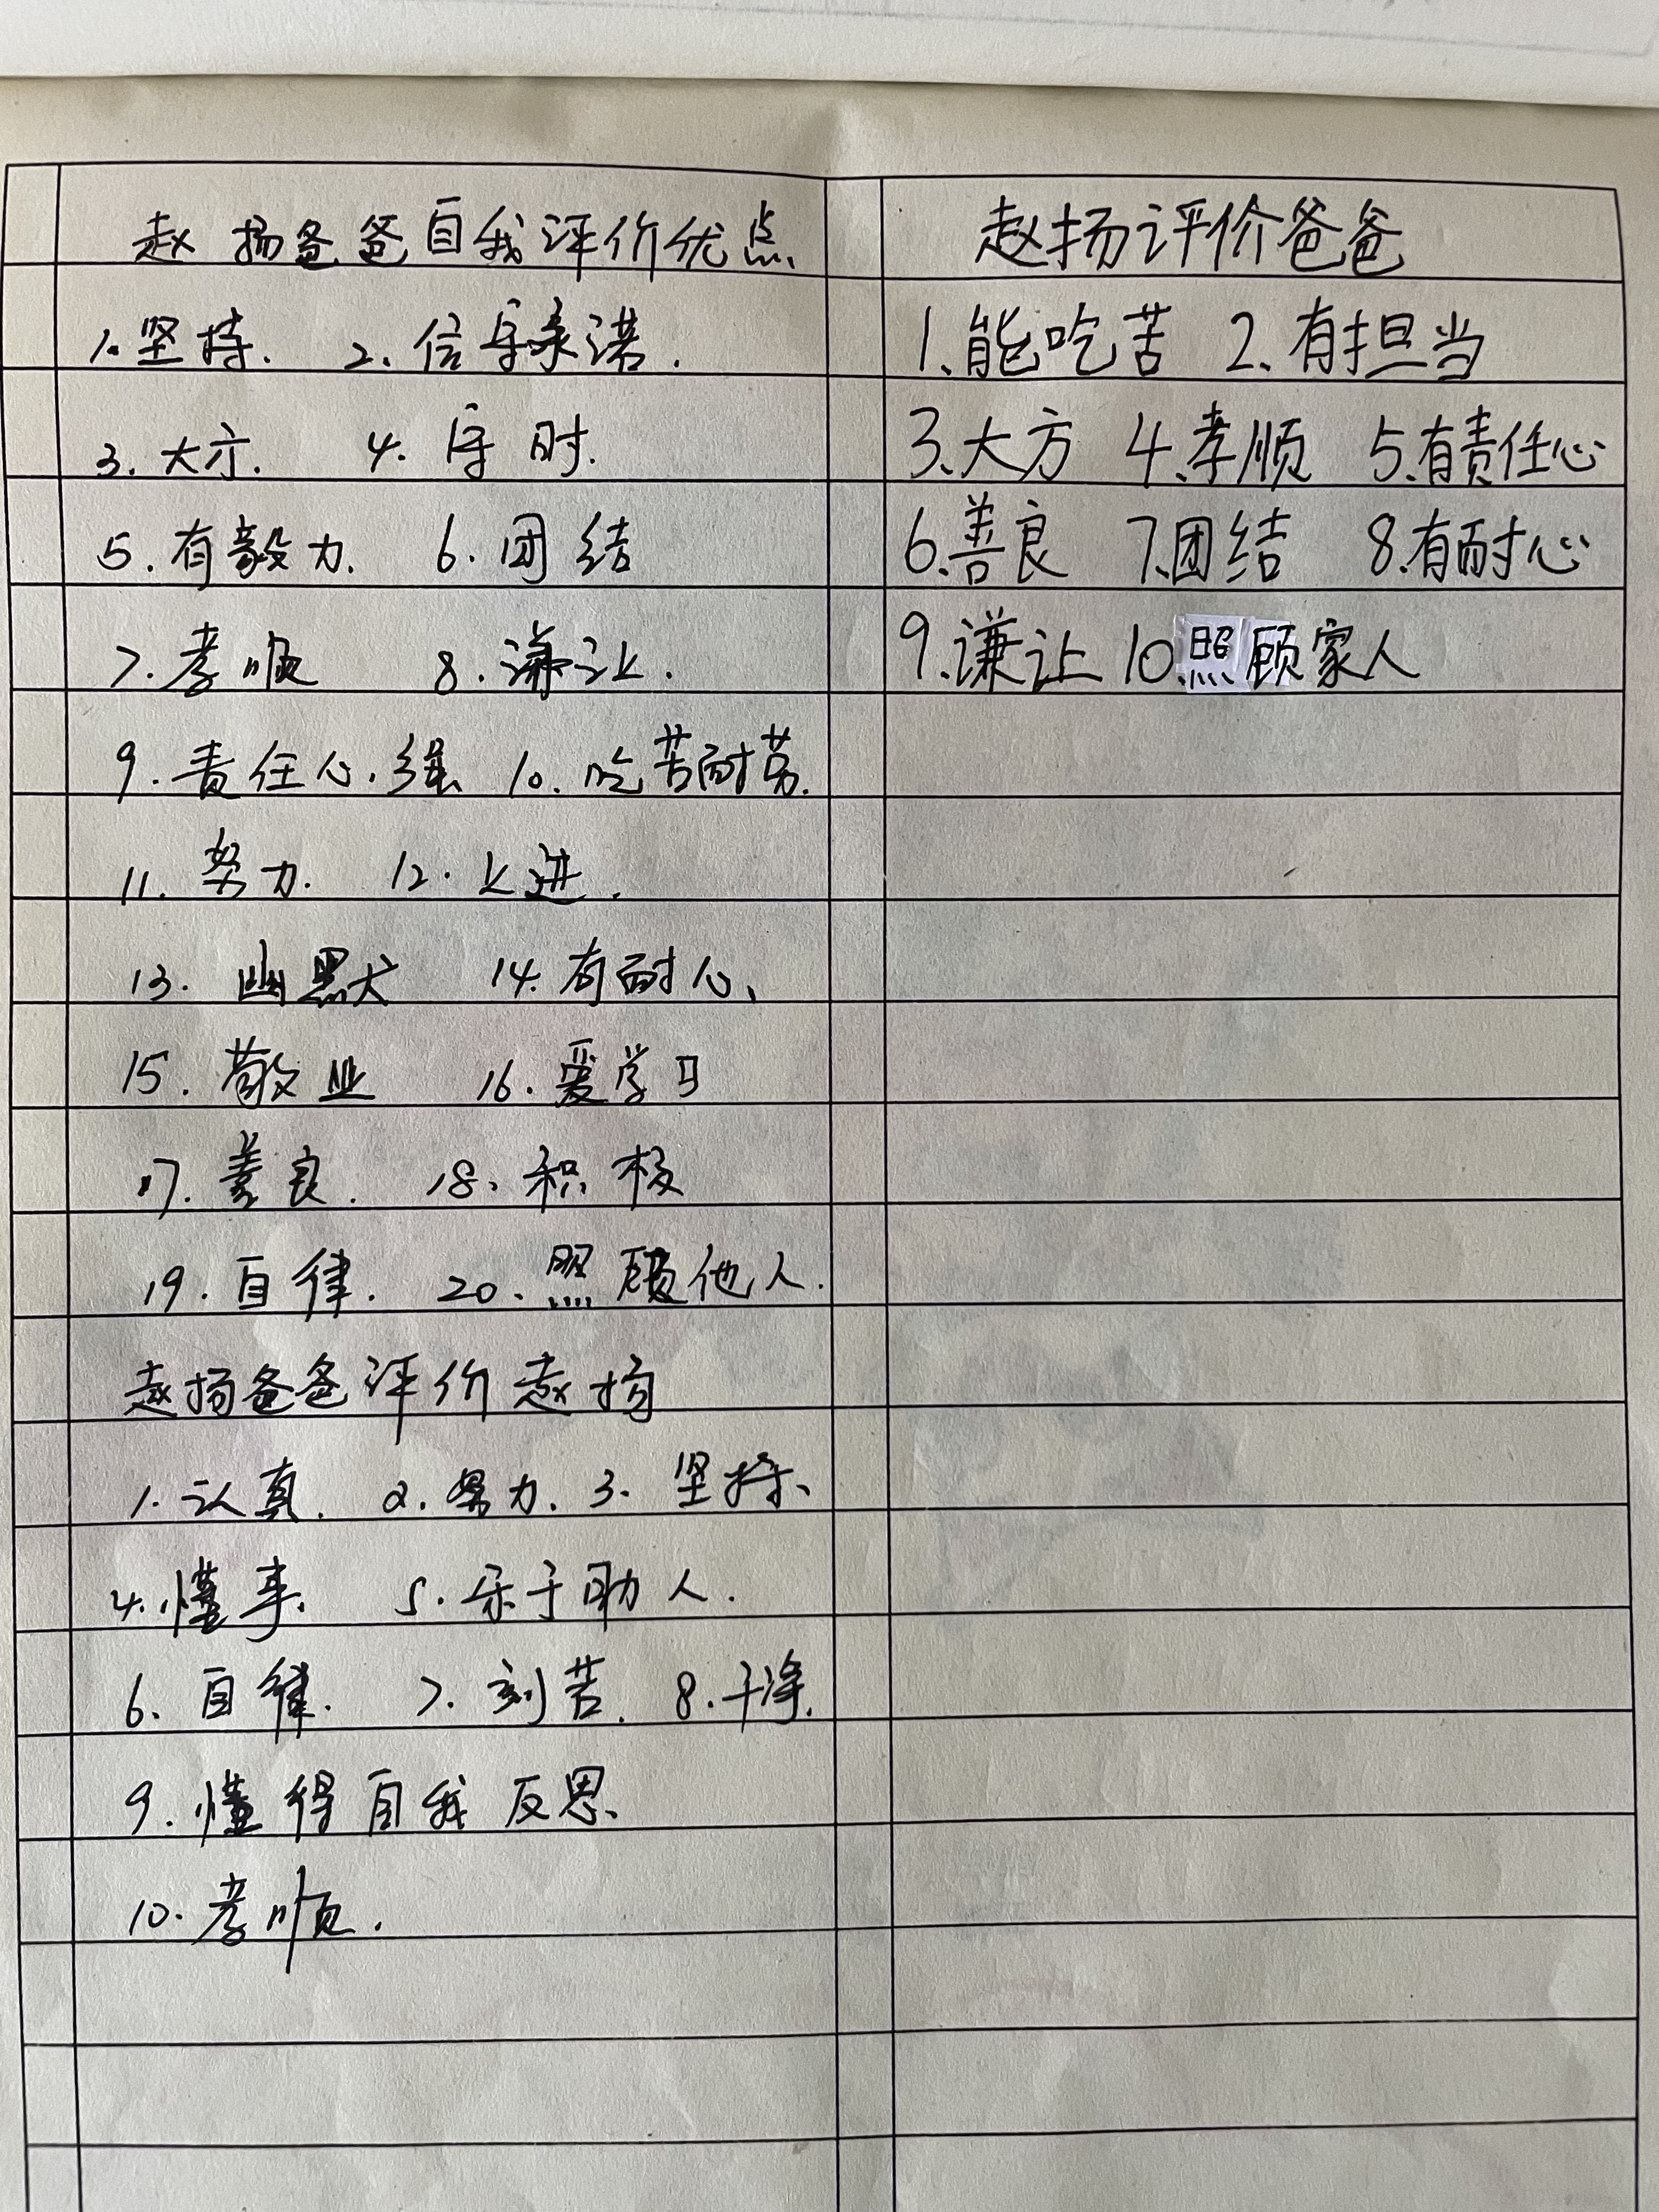 赵扬爸爸自我评价优点、
1.坚持. 2、信守承诺.
3.大方. 4.守时.
5.有毅力. 6.团结
7.孝顺 8.谦让.
9.责任心强 10.吃苦耐劳.
11.努力. 12.上进.
13.幽默 14.有耐心、
15.敬业 16.爱学习
17.善良. 18、积极
19.自律. 20、照顾他人.
赵扬爸爸评价赵扬
1.认真. 2.努力. 3.坚持、
4.懂事、 5.乐于助人.
6、自律. 7.刻苦. 8.干净.
9.懂得自我反思、
10.孝顺.
赵扬评价爸爸
1、能吃苦 2、有担当
3、大方 4、孝顺 5、有责任心
6、善良 7、团结 8、有耐心
9、谦让 10、照顾家人